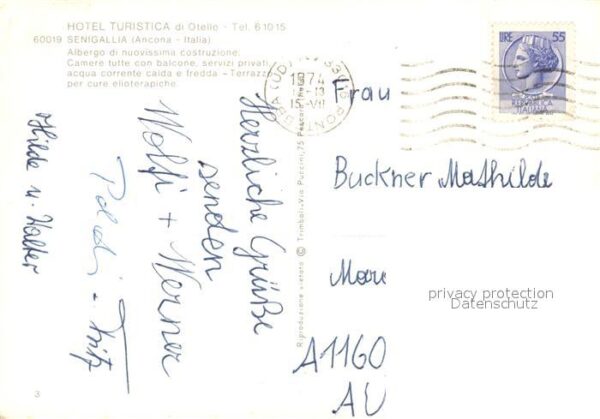 HOTEL TURISTICA di Otello - Tel. 61015
60019 SENIGALLIA (Ancona - Italia)
Albergo di nuovissima costruzione.
Camere tutte con balcone, servizi privati,
acqua corrente calda e fredda - Terrazz
per cure elioterapiche.
Herzliche Grüße
senden
Wolfi + Werner
Fritz
Hilde u. Walter
3
Riproduzione vietata © Trimboli, Via Puccini, 75 Pescara
1974
15-VII
LIRE 55
REPUBBLICA
ITALIANA
Frau
Buckner Mathilde
privacy protection
Datenschutz
A1160